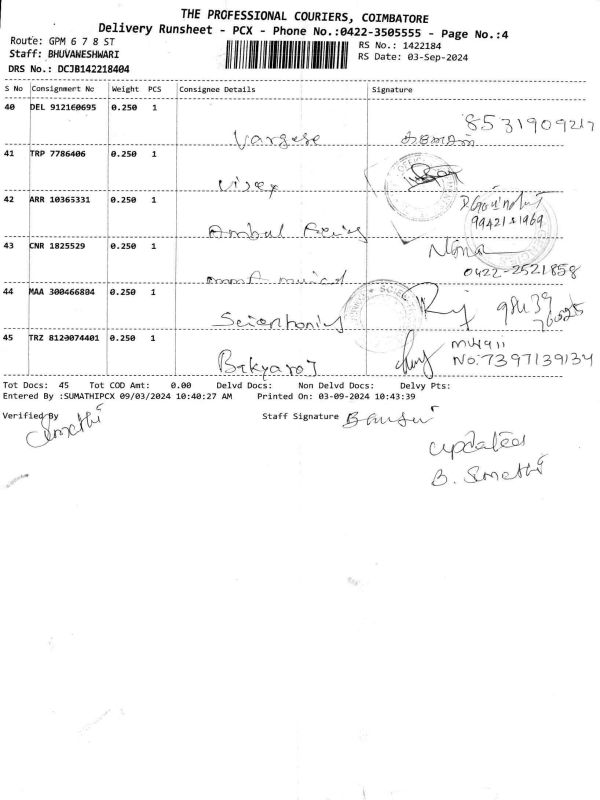 THE PROFESSIONAL COURIERS, COIMBATORE
Delivery Runsheet - PCX - Phone No.:0422-3505555 - Page No.:4
Route: GPM 6 7 8 ST
RS No.: 1422184
Staff: BHUVANESHWARI
RS Date: 03-Sep-2024
DRS No.: DCJB142218404
S No Consignment No Weight PCS Consignee Details Signature
40 DEL 912160695 0.250 1
Vargese 8531909217
41 TRP 7786406 0.250 1
Vijay
42 ARR 10365331 0.250 1
Ambal 99421 51969
43 CNR 1825529 0.250 1
0422-2521858
44 MAA 300466804 0.250 1
45 TRZ 8123074401 0.250 1
Bakyaraj No:7397139134
Tot Docs: 45 Tot COD Amt: 0.00 Delvd Docs: Non Delvd Docs: Delvy Pts:
Entered By :SUMATHIPCX 09/03/2024 10:40:27 AM Printed On: 03-09-2024 10:43:39
Verified By Staff Signature
updated
B. Sumathi